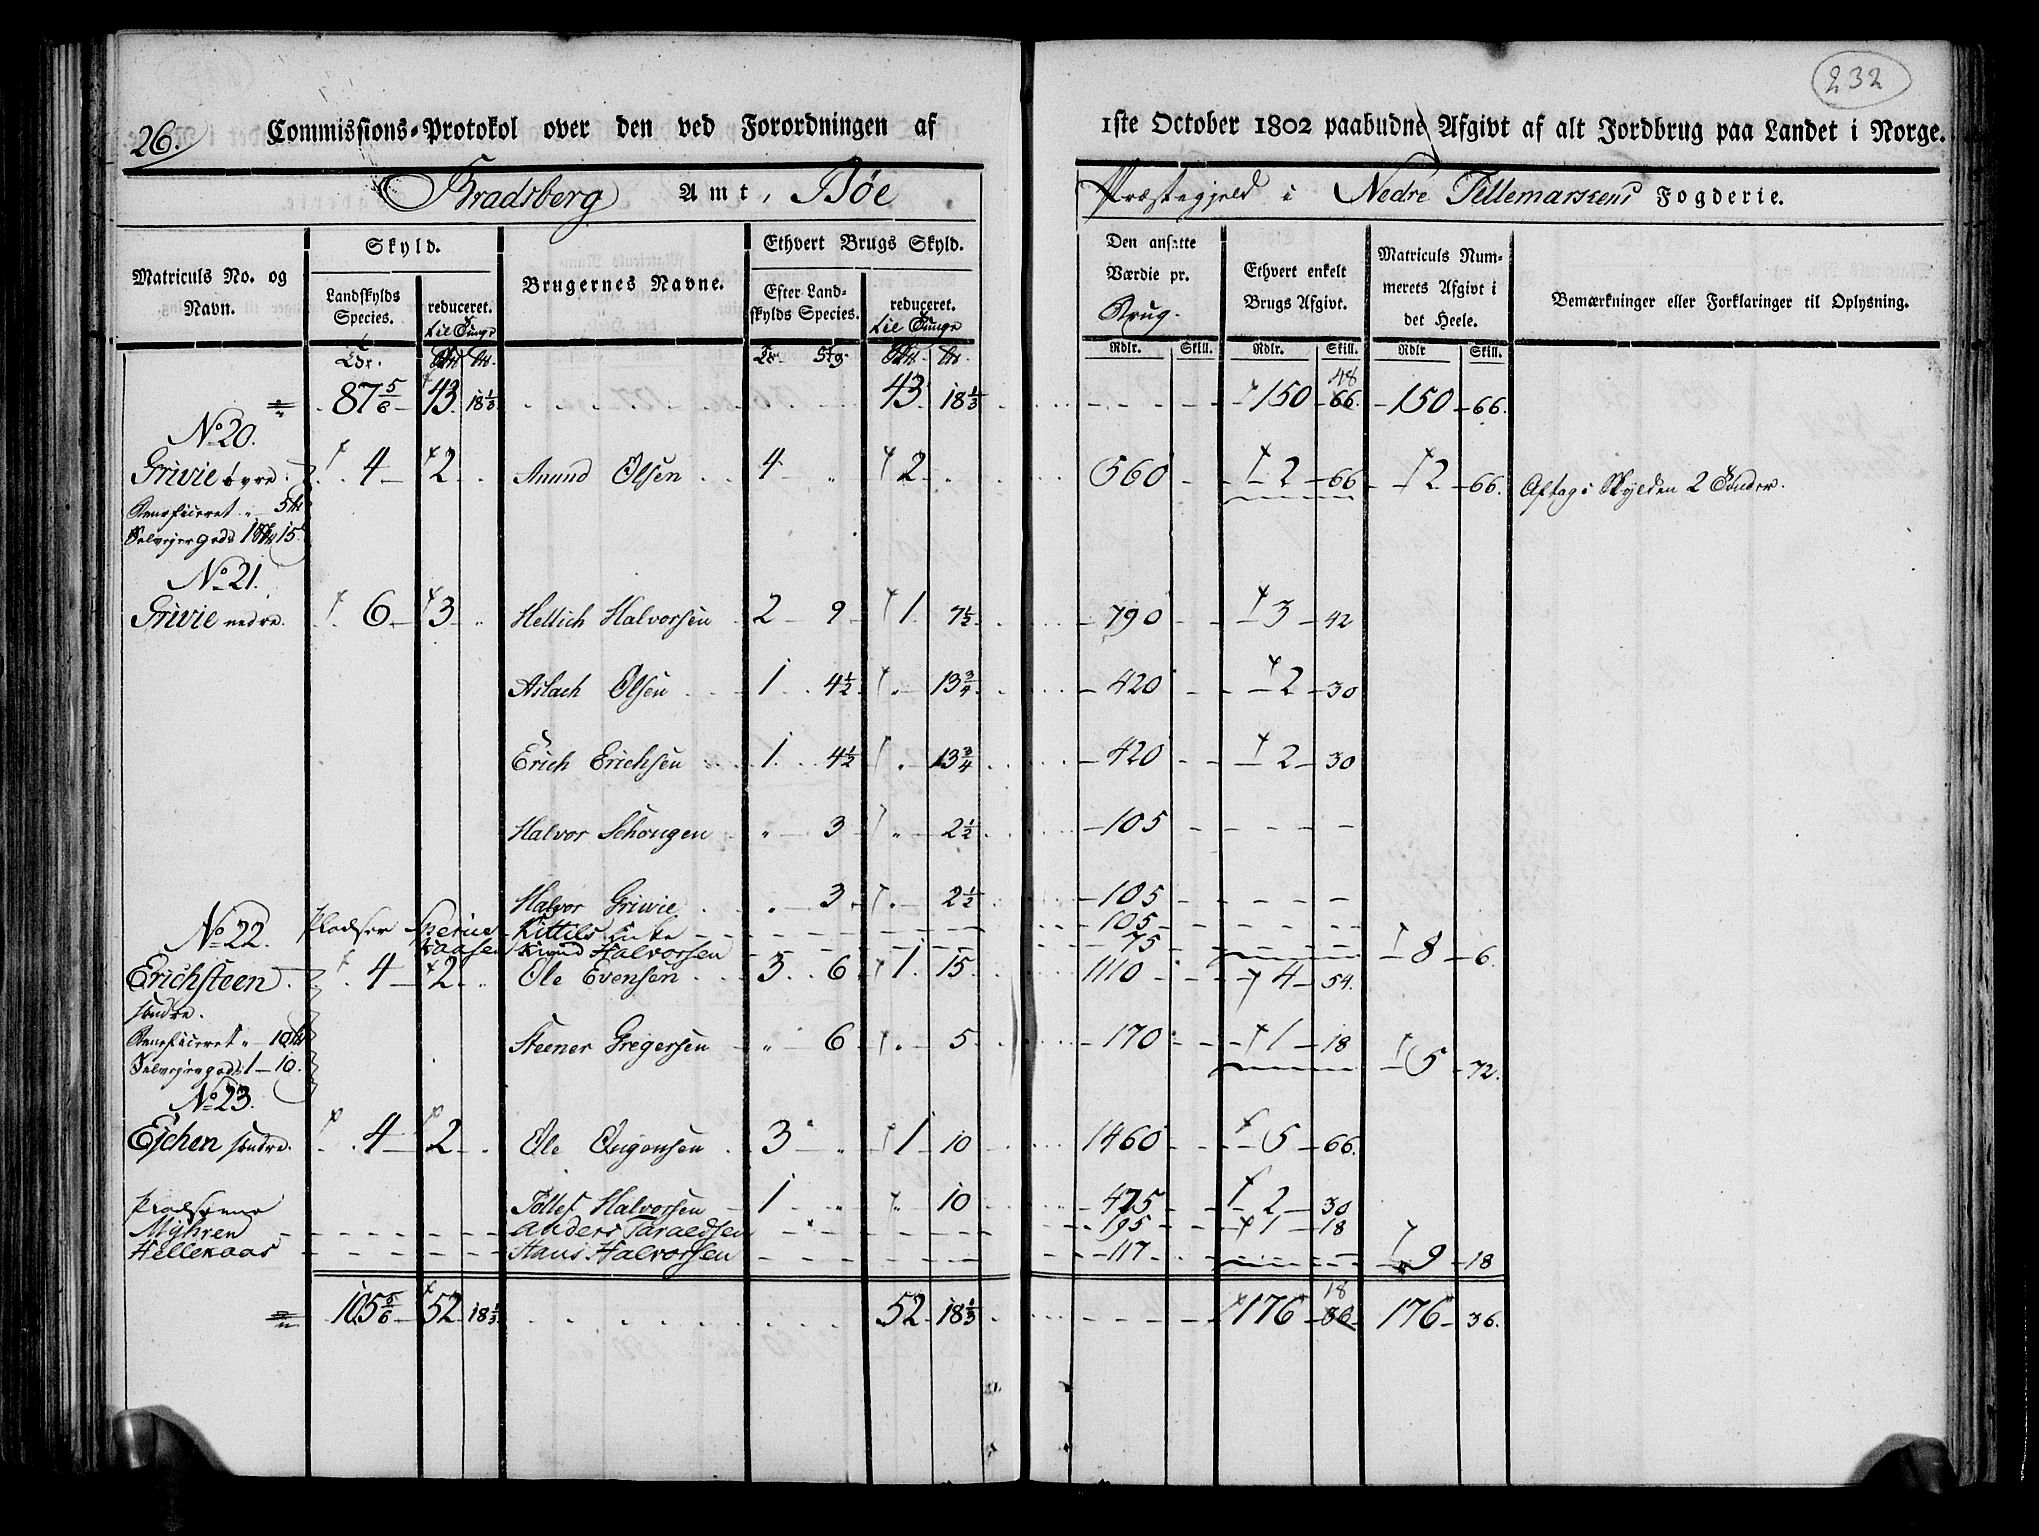 232
26.
Commissions-Protokol over den ved Forordningen af 1ste October 1802 paabudne Afgivt af alt Jordbrug paa Landet i Norge.
Bradsberg Amt, Bøe Præstegjeld i Nedre Tellemarkens Fogderie.
Matriculs No. og Navn.
Skyld.
Landskylds Species.
reduceret. til Tunge
Brugernes Navne.
Ethvert Brugs Skyld.
Efter Landskylds Species.
reduceret. til Tunge
Den ansatte Værdie pr. Brug.
Ethvert enkelt Brugs Afgivt.
Matriculs Nummerets Afgivt i det Heele.
Bemærkninger eller Forklaringer til Oplysning.
Rdlr. Skill. Rdlr. Skill. Rdlr Skill.
87 5/6 43 18 1/3 43 18 1/3 150 48 66 150 66.
No 20.
Grivie øvre. 4 2 Anund Olsen 4 " 2 " 560 2 66 2 66. Aftag i Skylden 2 Tønder.
Beneficeret " 5
Selveyer gods 1 15
No 21.
Grivie nedre. 6 3 " Hellich Halvorsen 2 9 1 7 1/2 790 3 42
Aslach Olsen 1 4 1/2 " 13 3/4 420 2 30
Erich Erichsen 1 4 1/2 " 13 3/4 420 2 30
Halvor Schougen " 3 " 2 1/2 105
Halvor Griwie " 3 " 2 1/2 105
Pladser Kittils 105
Knud Halvorsen 75 8 6.
No 22.
Erichsteen 4 2 " Ole Evensen 3 6 1 15 1110 4 54.
søndre.
Beneficeret " 10 Steener Gregersen " 6 " 5 170 1 18
Selveyergods 1 10. 5 72.
No 23.
Eschen søndre. 4 2 " Ole 3 " 1 10 1460 5 66.
Pladserne Tollef Halvorsen 1 " " 10 475 2 30
Myhren Anders Taraldsen 195 1 18
Hellekaas Hans Halvorsen 117 9 18
105 5/6 52 18 1/3 52 18 1/3 176 18 36 176 36.